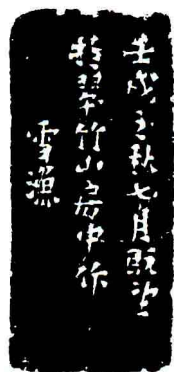 壬戌之秋七月既望
於翠竹山房中作
雪漁